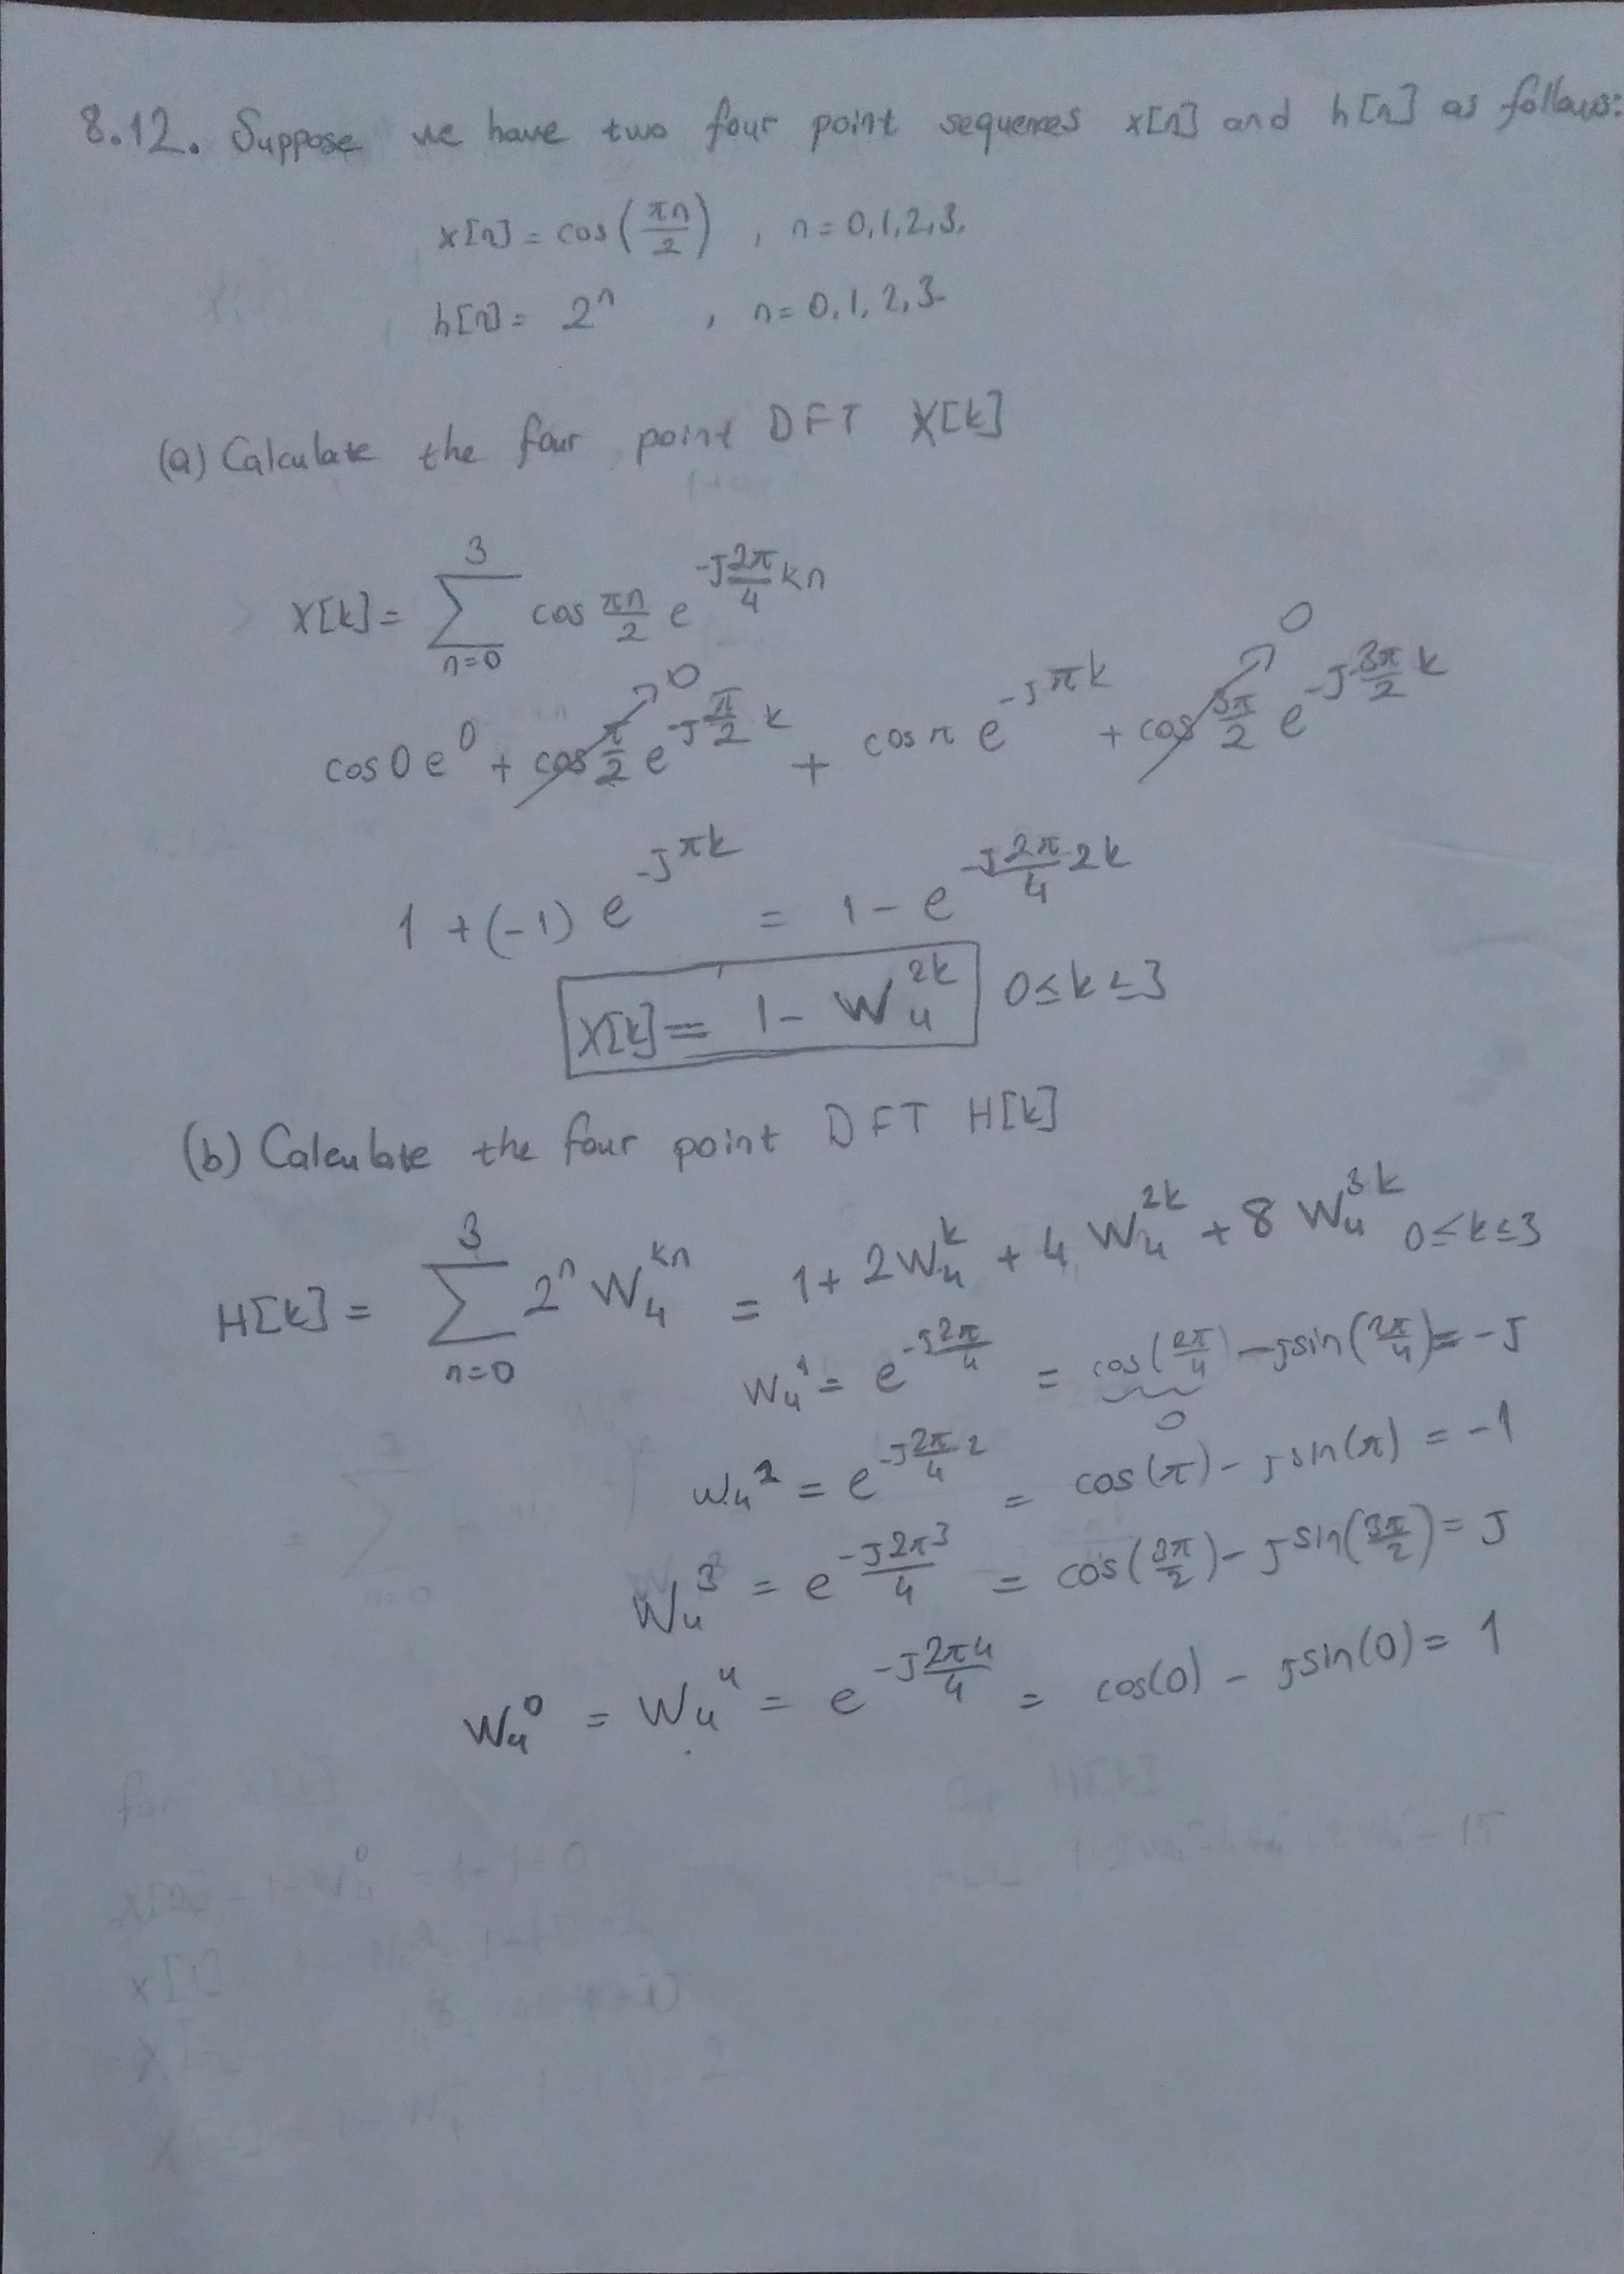 8.12. Suppose we have two four point sequences x[n] and h[n] as follows:
x[n] = cos(πn/2) , n=0,1,2,3.
h[n] = 2^n , n=0,1,2,3.
(a) Calculate the four point DFT X[k]
X[k] = Σ_{n=0}^{3} cos πn/2 e^{-J 2π/4 kn}
cos0 e^0 + cos π/2 e^{-J π/2 k} → 0 + cos π e^{-Jπk} + cos 3π/2 e^{-J 3π/2 k} → 0
1 + (-1) e^{-Jπk} = 1 - e^{-J 2π/4 2k}
X[k] = 1 - W_4^{2k} 0≤k≤3
(b) Calculate the four point DFT H[k]
H[k] = Σ_{n=0}^{3} 2^n W_4^{kn} = 1 + 2W_4^k + 4 W_4^{2k} + 8 W_4^{3k} 0≤k≤3
W_4^1 = e^{-J 2π/4} = cos(2π/4) - jsin(2π/4) = -J
0
W_4^2 = e^{-J 2π/4 2} = cos(π) - jsin(π) = -1
W_4^3 = e^{-J 2π3/4} = cos(3π/2) - jsin(3π/2) = J
W_4^0 = W_4^4 = e^{-J 2π4/4} = cos(0) - jsin(0) = 1